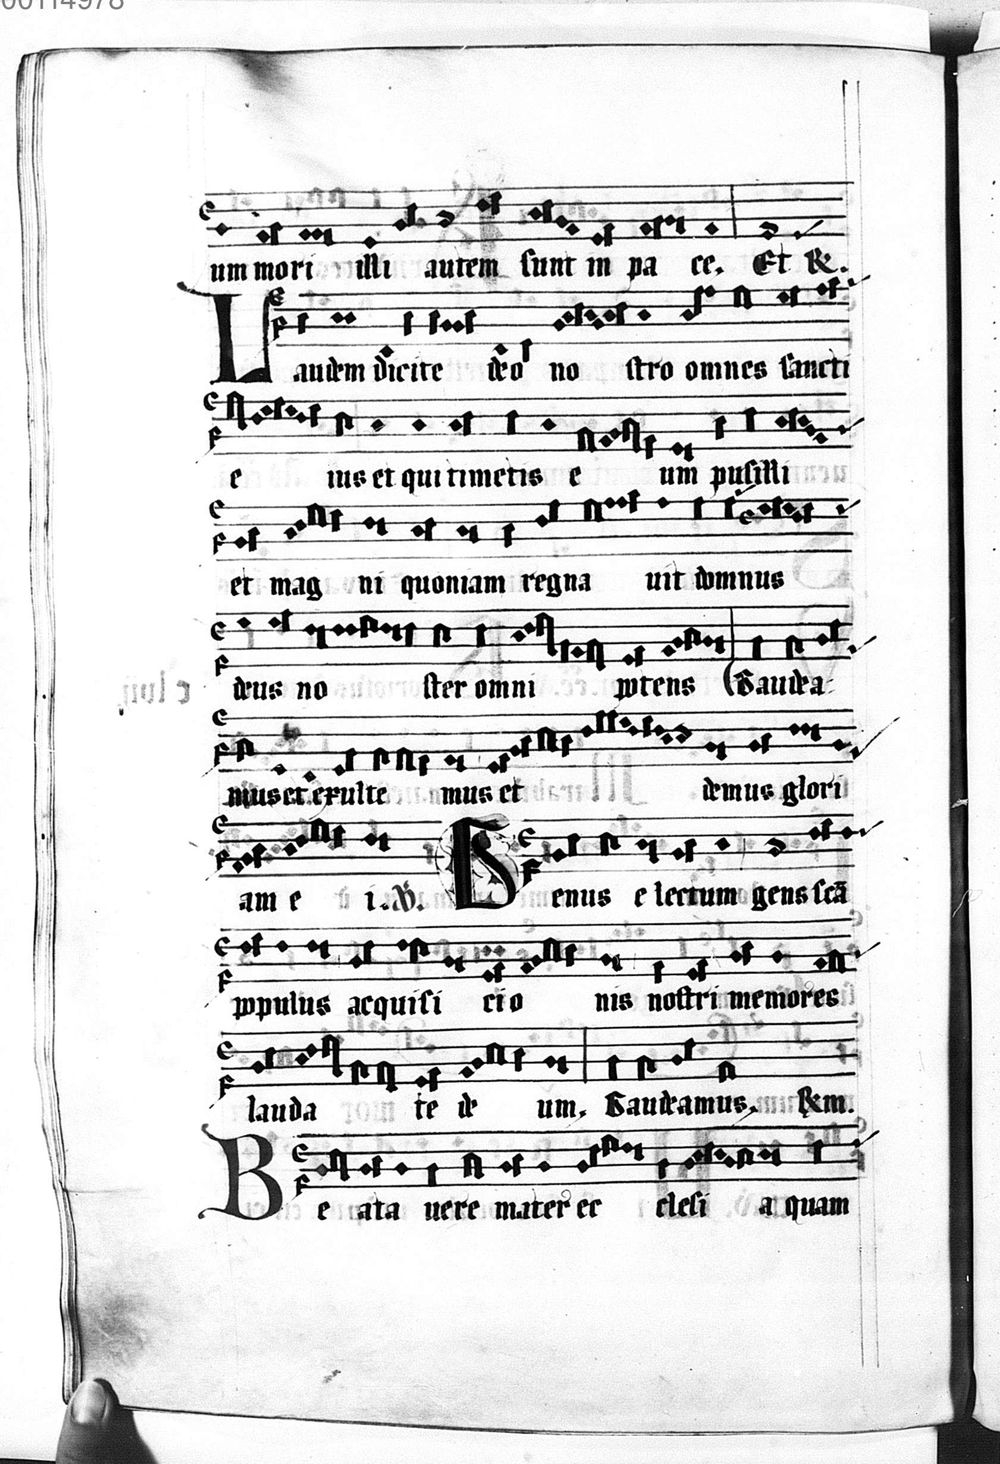 00114978
um mori illi autem sunt in pa ce. Et R.
Laudem dicite deo no stro omnes sancti
e ius et qui timetis e um pusilli
et mag ni quoniam regna uit domnus
deus no ster omni potens Gaudea
mus et exulte mus et demus glori
am e i. V. Genus e lectum gens scā
populus acquisi cio nis nostri memores
lauda te de um. Gaudeamus. Rm.
Be ata uere mater ec clesi a quam